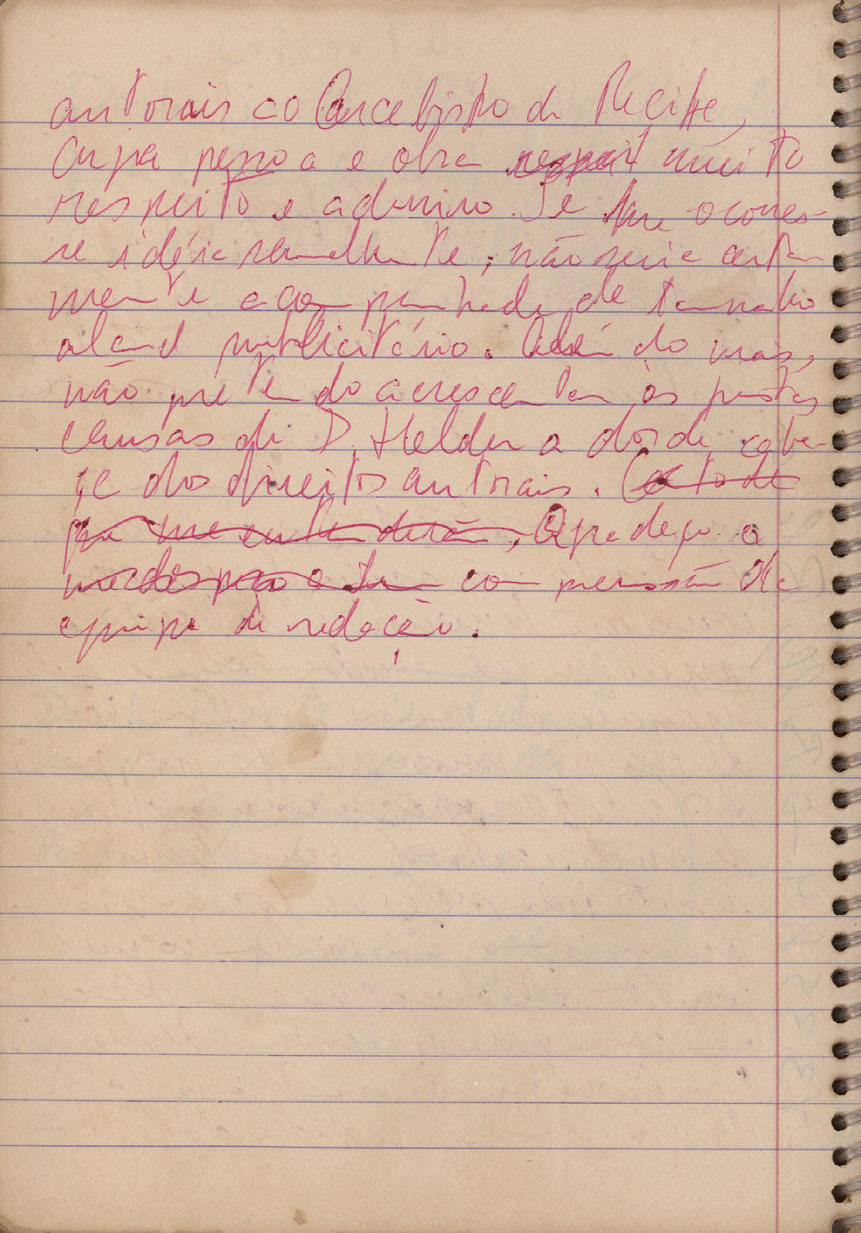 autorais ao Arcebispo de Recife,
cuja pessoa e obra respeit muito
respeito e admiro. Se me ocorres-
se idéia semelhante, não seria certa
mente acompanhada de tamanho
alard publicitário. Além do mais,
não pretendo acrescentar às justas
causas de D. Helder a dor de cabe-
ça dos direitos autorais. Certo de
que me entenderão, Agradeço a
compreensão da
equipe de redação.